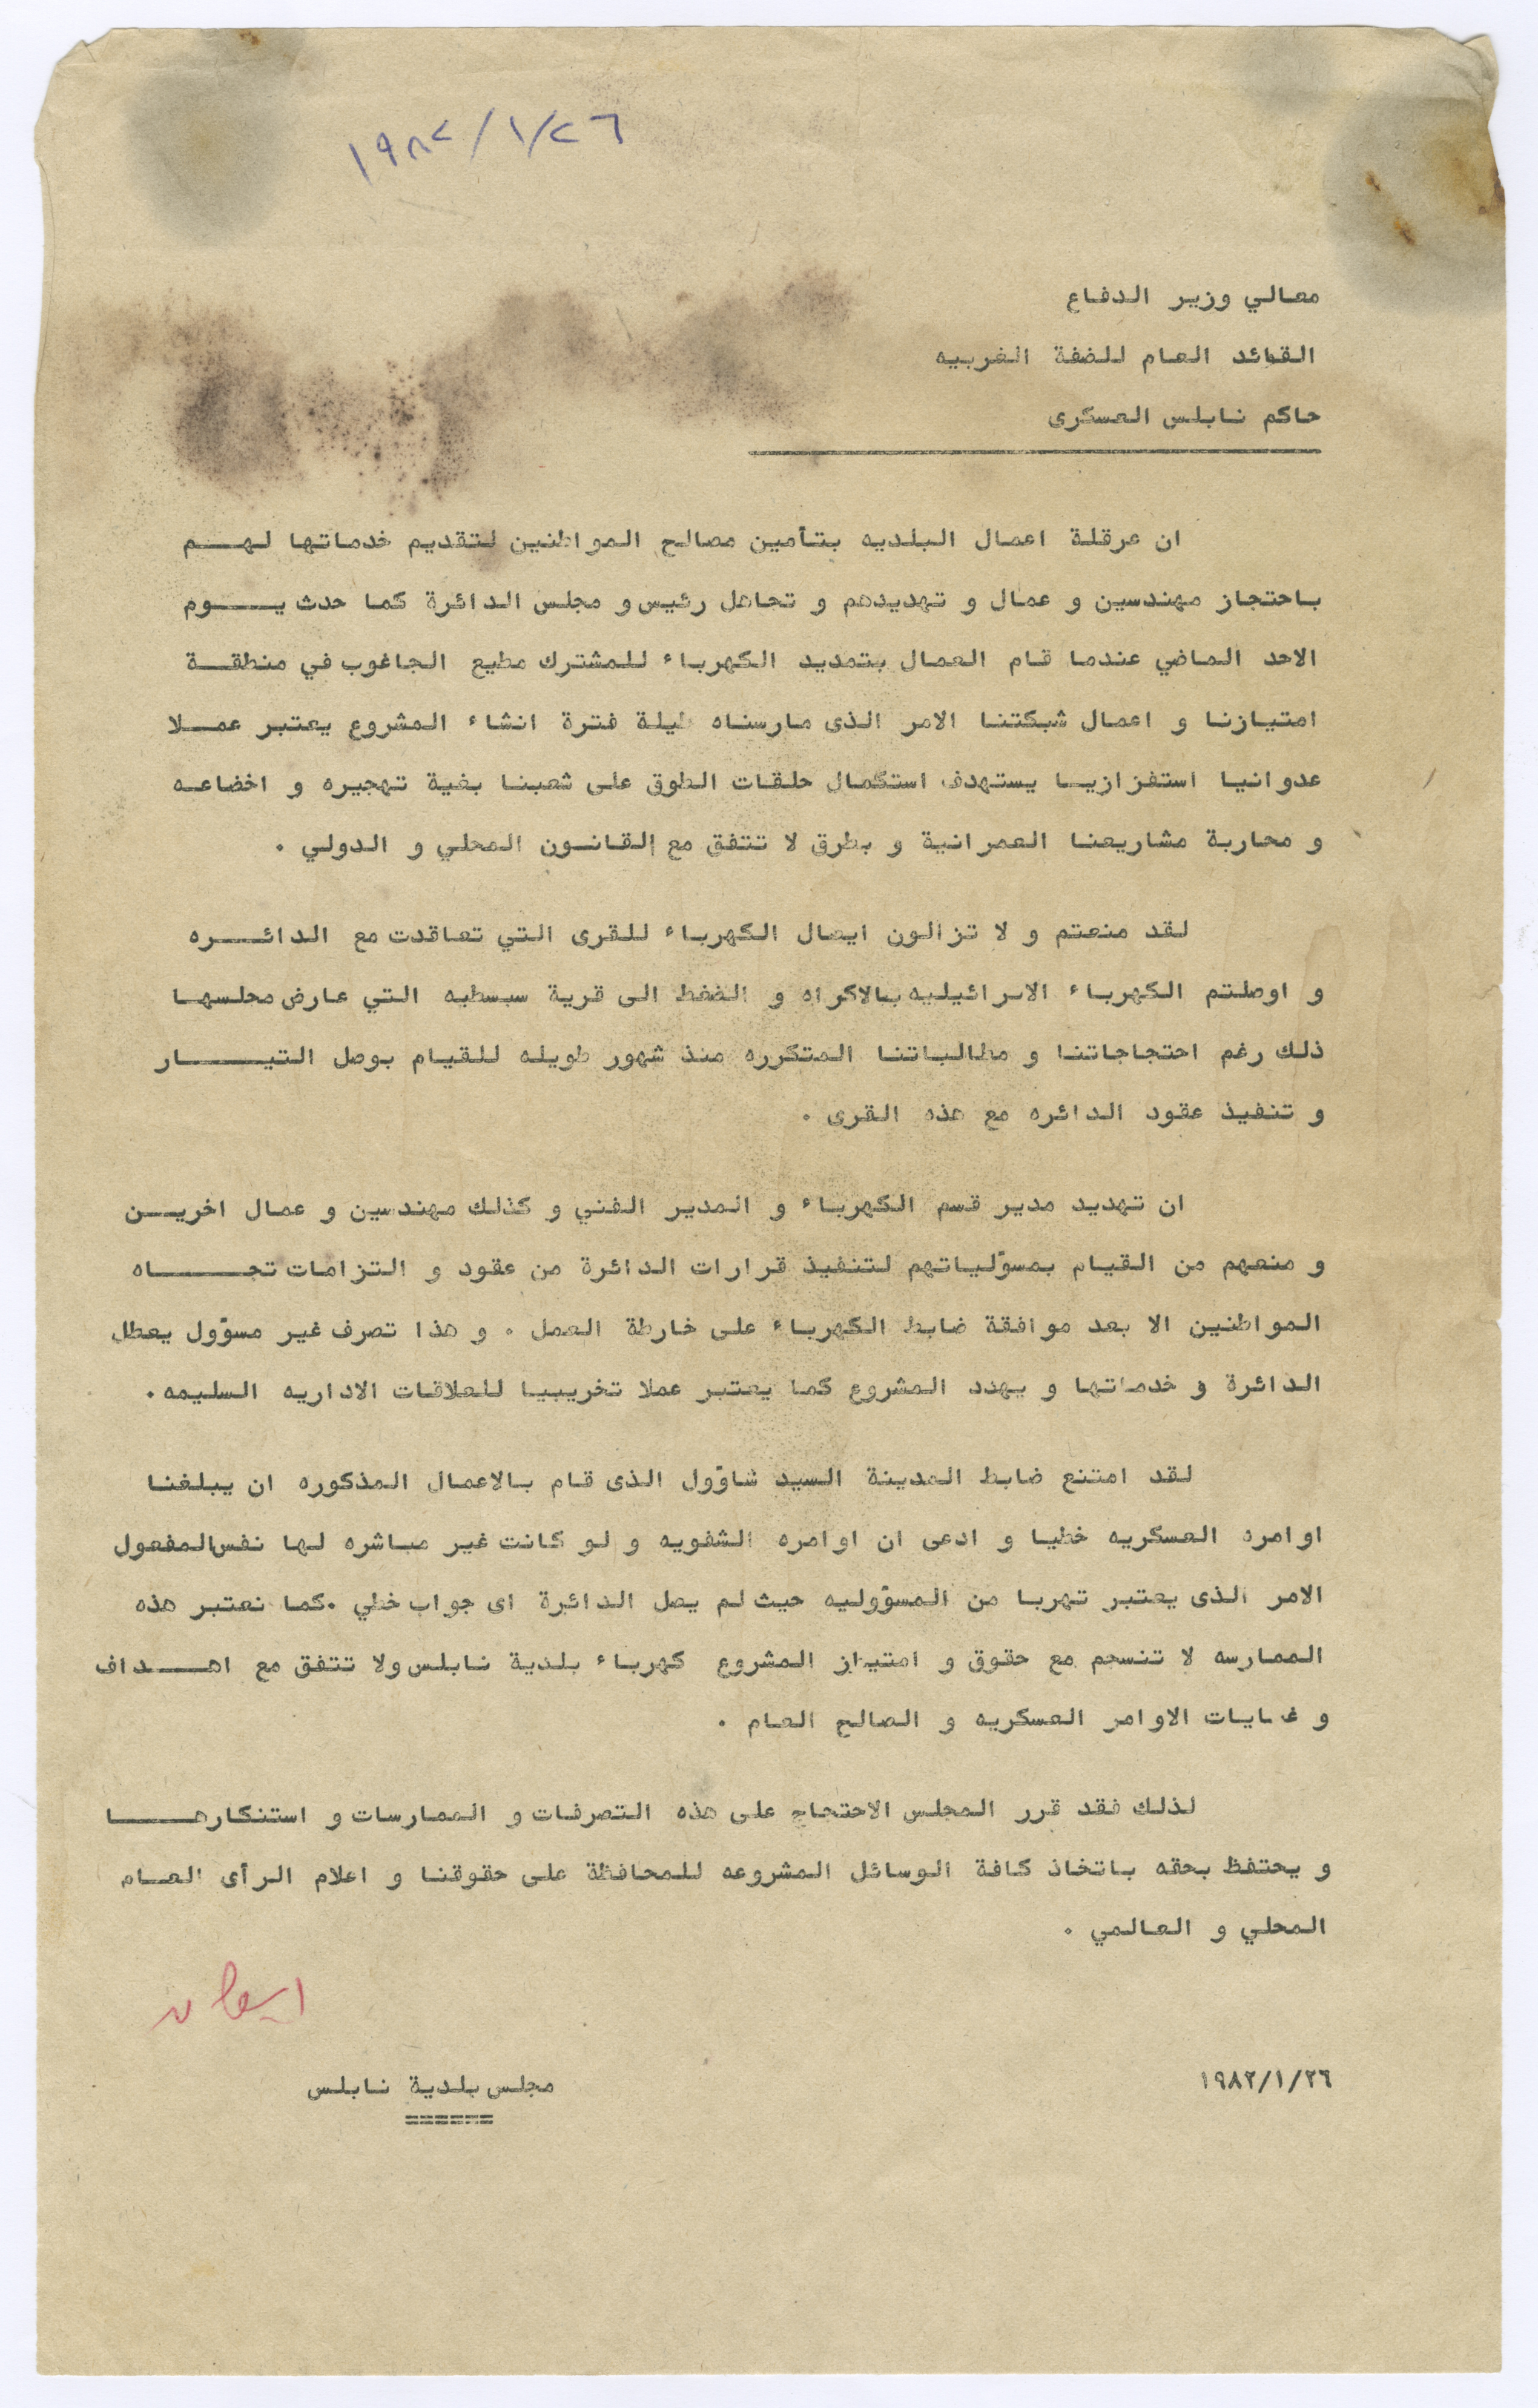 ١٩٨٢/١/٢٦
معالي وزير الدفاع
القائد العام للضفة الغربيه
حاكم نابلس العسكرى
ان عرقلة اعمال البلديه بتأمين مصالح المواطنين لتقديم خدماتها لهم
باحتجاز مهندسين و عمال و تهديدهم و تجاهل رئيس و مجلس الدائرة كما حدث يوم
الاحد الماضي عندما قام العمال بتمديد الكهرباء للمشترك مطيع الجاغوب في منطقة
امتيازنا و اعمال شبكتنا الامر الذى مارسناه طيلة فترة انشاء المشروع يعتبر عملا
عدوانيا استفزازيا يستهدف استكمال حلقات الطوق على شعبنا بغية تهجيره و اخضاعه
و محاربة مشاريعنا العمرانية و بطرق لا تتفق مع القانون المحلي و الدولي .
لقد منعتم و لا تزالون ايصال الكهرباء للقرى التي تعاقدت مع الدائره
و اوصلتم الكهرباء الاسرائيليه بالاكراه و الضغط الى قرية سبسطيه التي عارض مجلسها
ذلك رغم احتجاجاتنا و مطالباتنا المتكرره منذ شهور طويله للقيام بوصل التيار
و تنفيذ عقود الدائره مع هذه القرى .
ان تهديد مدير قسم الكهرباء و المدير الفني و كذلك مهندسين و عمال اخرين
و منعهم من القيام بمسؤلياتهم لتنفيذ قرارات الدائرة من عقود و التزامات تجاه
المواطنين الا بعد موافقة ضابط الكهرباء على خارطة العمل . و هذا تصرف غير مسؤول يعطل
الدائرة و خدماتها و يهدد المشروع كما يعتبر عملا تخريبيا للعلاقات الاداريه السليمه .
لقد امتنع ضابط المدينة السيد شاؤول الذى قام بالاعمال المذكوره ان يبلغنا
اوامره العسكريه خطيا و ادعى ان اوامره الشفويه و لو كانت غير مباشره لها نفس المفعول
الامر الذى يعتبر تهربا من المسؤوليه حيث لم يصل الدائرة اى جواب خطي .كما نعتبر هذه
الممارسه لا تنسجم مع حقوق و امتياز المشروع كهرباء بلدية نابلس ولا تتفق مع اهداف
و غايات الاوامر العسكريه و الصالح العام .
لذلك فقد قرر المجلس الاحتجاج على هذه التصرفات و الممارسات و استنكارها
و يحتفظ بحقه باتخاذ كافة الوسائل المشروعه للمحافظة على حقوقنا و اعلام الرأى العام
المحلي و العالمي .
١٩٨٢/١/٢٦
مجلس بلدية نابلس